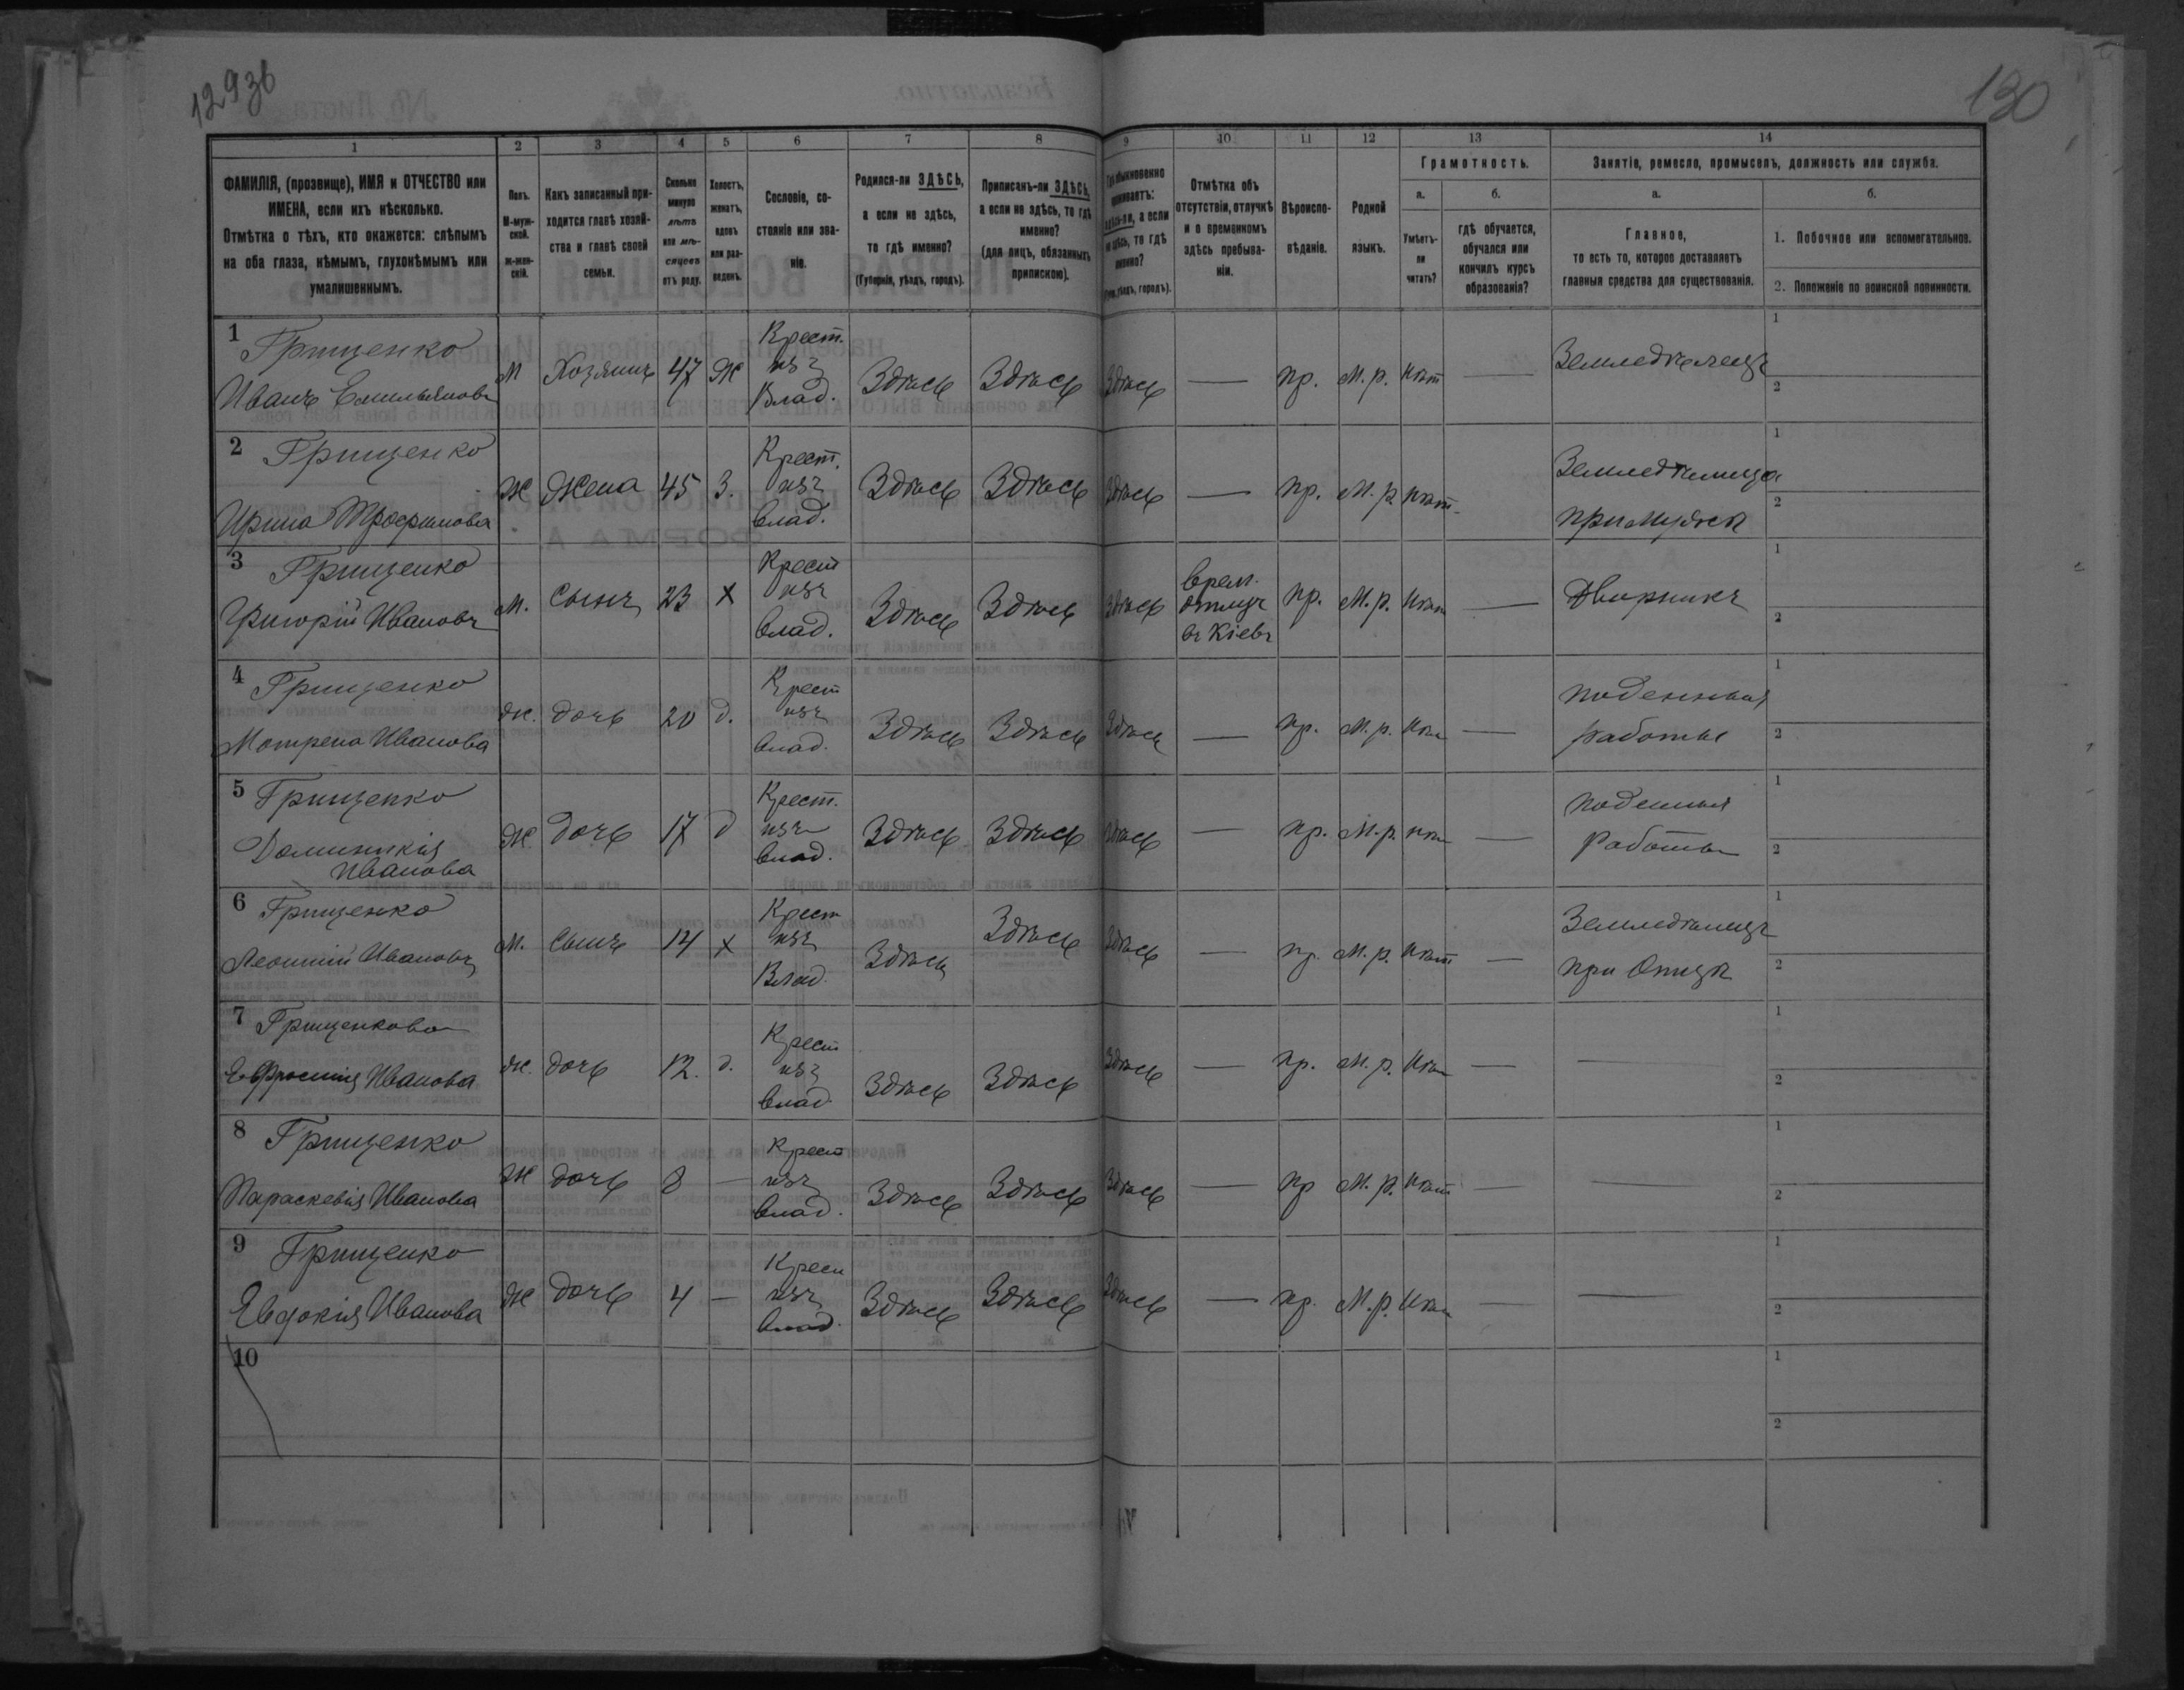 12936
130
1 2 3 4 5 6 7 8 9 10 11 12 13 14
ФАМИЛІЯ, (прозвище), ИМЯ и ОТЧЕСТВО или ИМЕНА, если ихъ нѣсколько.
Отмѣтка о тѣхъ, кто окажется: слѣпымъ на оба глаза, нѣмымъ, глухонѣмымъ или умалишеннымъ.
Полъ. М-мужской. ж-женскій.
Какъ записанный приходится главѣ хозяйства и главѣ своей семьи.
Сколько минуло лѣтъ или мѣсяцевъ отъ роду.
Холостъ, женатъ, вдовъ или разведенъ.
Сословіе, состояніе или званіе.
Родился-ли ЗДѢСЬ, а если не здѣсь, то гдѣ именно? (Губернія, уѣздъ, городъ).
Приписанъ-ли ЗДѢСЬ, а если не здѣсь, то гдѣ именно? (для лицъ, обязанныхъ припискою).
Гдѣ обыкновенно проживаетъ: здѣсь-ли, а если не здѣсь, то гдѣ именно? (Губ., уѣздъ, городъ).
Отмѣтка объ отсутствіи, отлучкѣ и о временномъ здѣсь пребываніи.
Вѣроисповѣданіе.
Родной языкъ.
Грамотность.
а. Умѣетъ-ли читать?
б. гдѣ обучается, обучался или кончилъ курсъ образованія?
Занятіе, ремесло, промыселъ, должность или служба.
а. Главное, то есть то, которое доставляетъ главныя средства для существованія.
б.
1. Побочное или вспомогательное.
2. Положеніе по воинской повинности.
1 Грищенко Иванъ Емельяновъ М Хозяинъ 47 Ж Крест. изъ Влад. Здѣсь Здѣсь Здѣсь — пр. М. р. нѣт — Земледѣлецъ 1 2
2 Грищенко Ирина Трофимова Ж Жена 45 З. Крест. изъ влад. Здѣсь Здѣсь Здѣсь — пр. М. р. нѣт Земледѣлица при мужѣ 1 2
3 Грищенко Григорій Ивановъ М. сынъ 23 Х Крест изъ влад. Здѣсь Здѣсь Здѣсь врем. отлуч въ Кіевъ пр. М. р. нѣт — Дворникъ 1 2
4 Грищенко Мотрена Иванова Ж. дочь 20 д. Крест изъ влад. Здѣсь Здѣсь Здѣсь — пр. М. р. нѣт — поденныя работы 1 2
5 Грищенко Доминикія Иванова Ж дочь 17 д Крест. изъ влад. Здѣсь Здѣсь Здѣсь — пр. М. р. нѣт — поденныя работы 1 2
6 Грищенко Леонтій Ивановъ М. сынъ 14 х Крест изъ Влад. Здѣсь Здѣсь Здѣсь — пр. М. р. нѣт — Земледѣлецъ при Отцѣ 1 2
7 Грищенкова Ефросинія Иванова Ж. дочь 12. д. Крест изъ влад. Здѣсь Здѣсь Здѣсь — пр. М. р. нѣт — — 1 2
8 Грищенко Параскевія Иванова Ж дочь 8 — Крест изъ влад. Здѣсь Здѣсь Здѣсь — пр М. р. нѣт — — 1 2
9 Грищенко Евдокія Иванова Ж дочь 4 — Крест изъ влад. Здѣсь Здѣсь Здѣсь — пр. М. р. нѣт — — 1 2
10 1 2